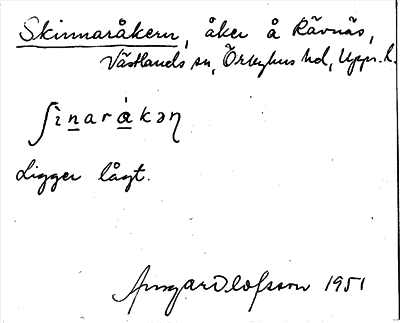 Skinnaråkern, åker å Rävnäs,
Västlands sn, Örbyhus hd, Upps. l.
ʃìn̲ará̲kəɳ
Ligger lågt.
Olofsson 1951